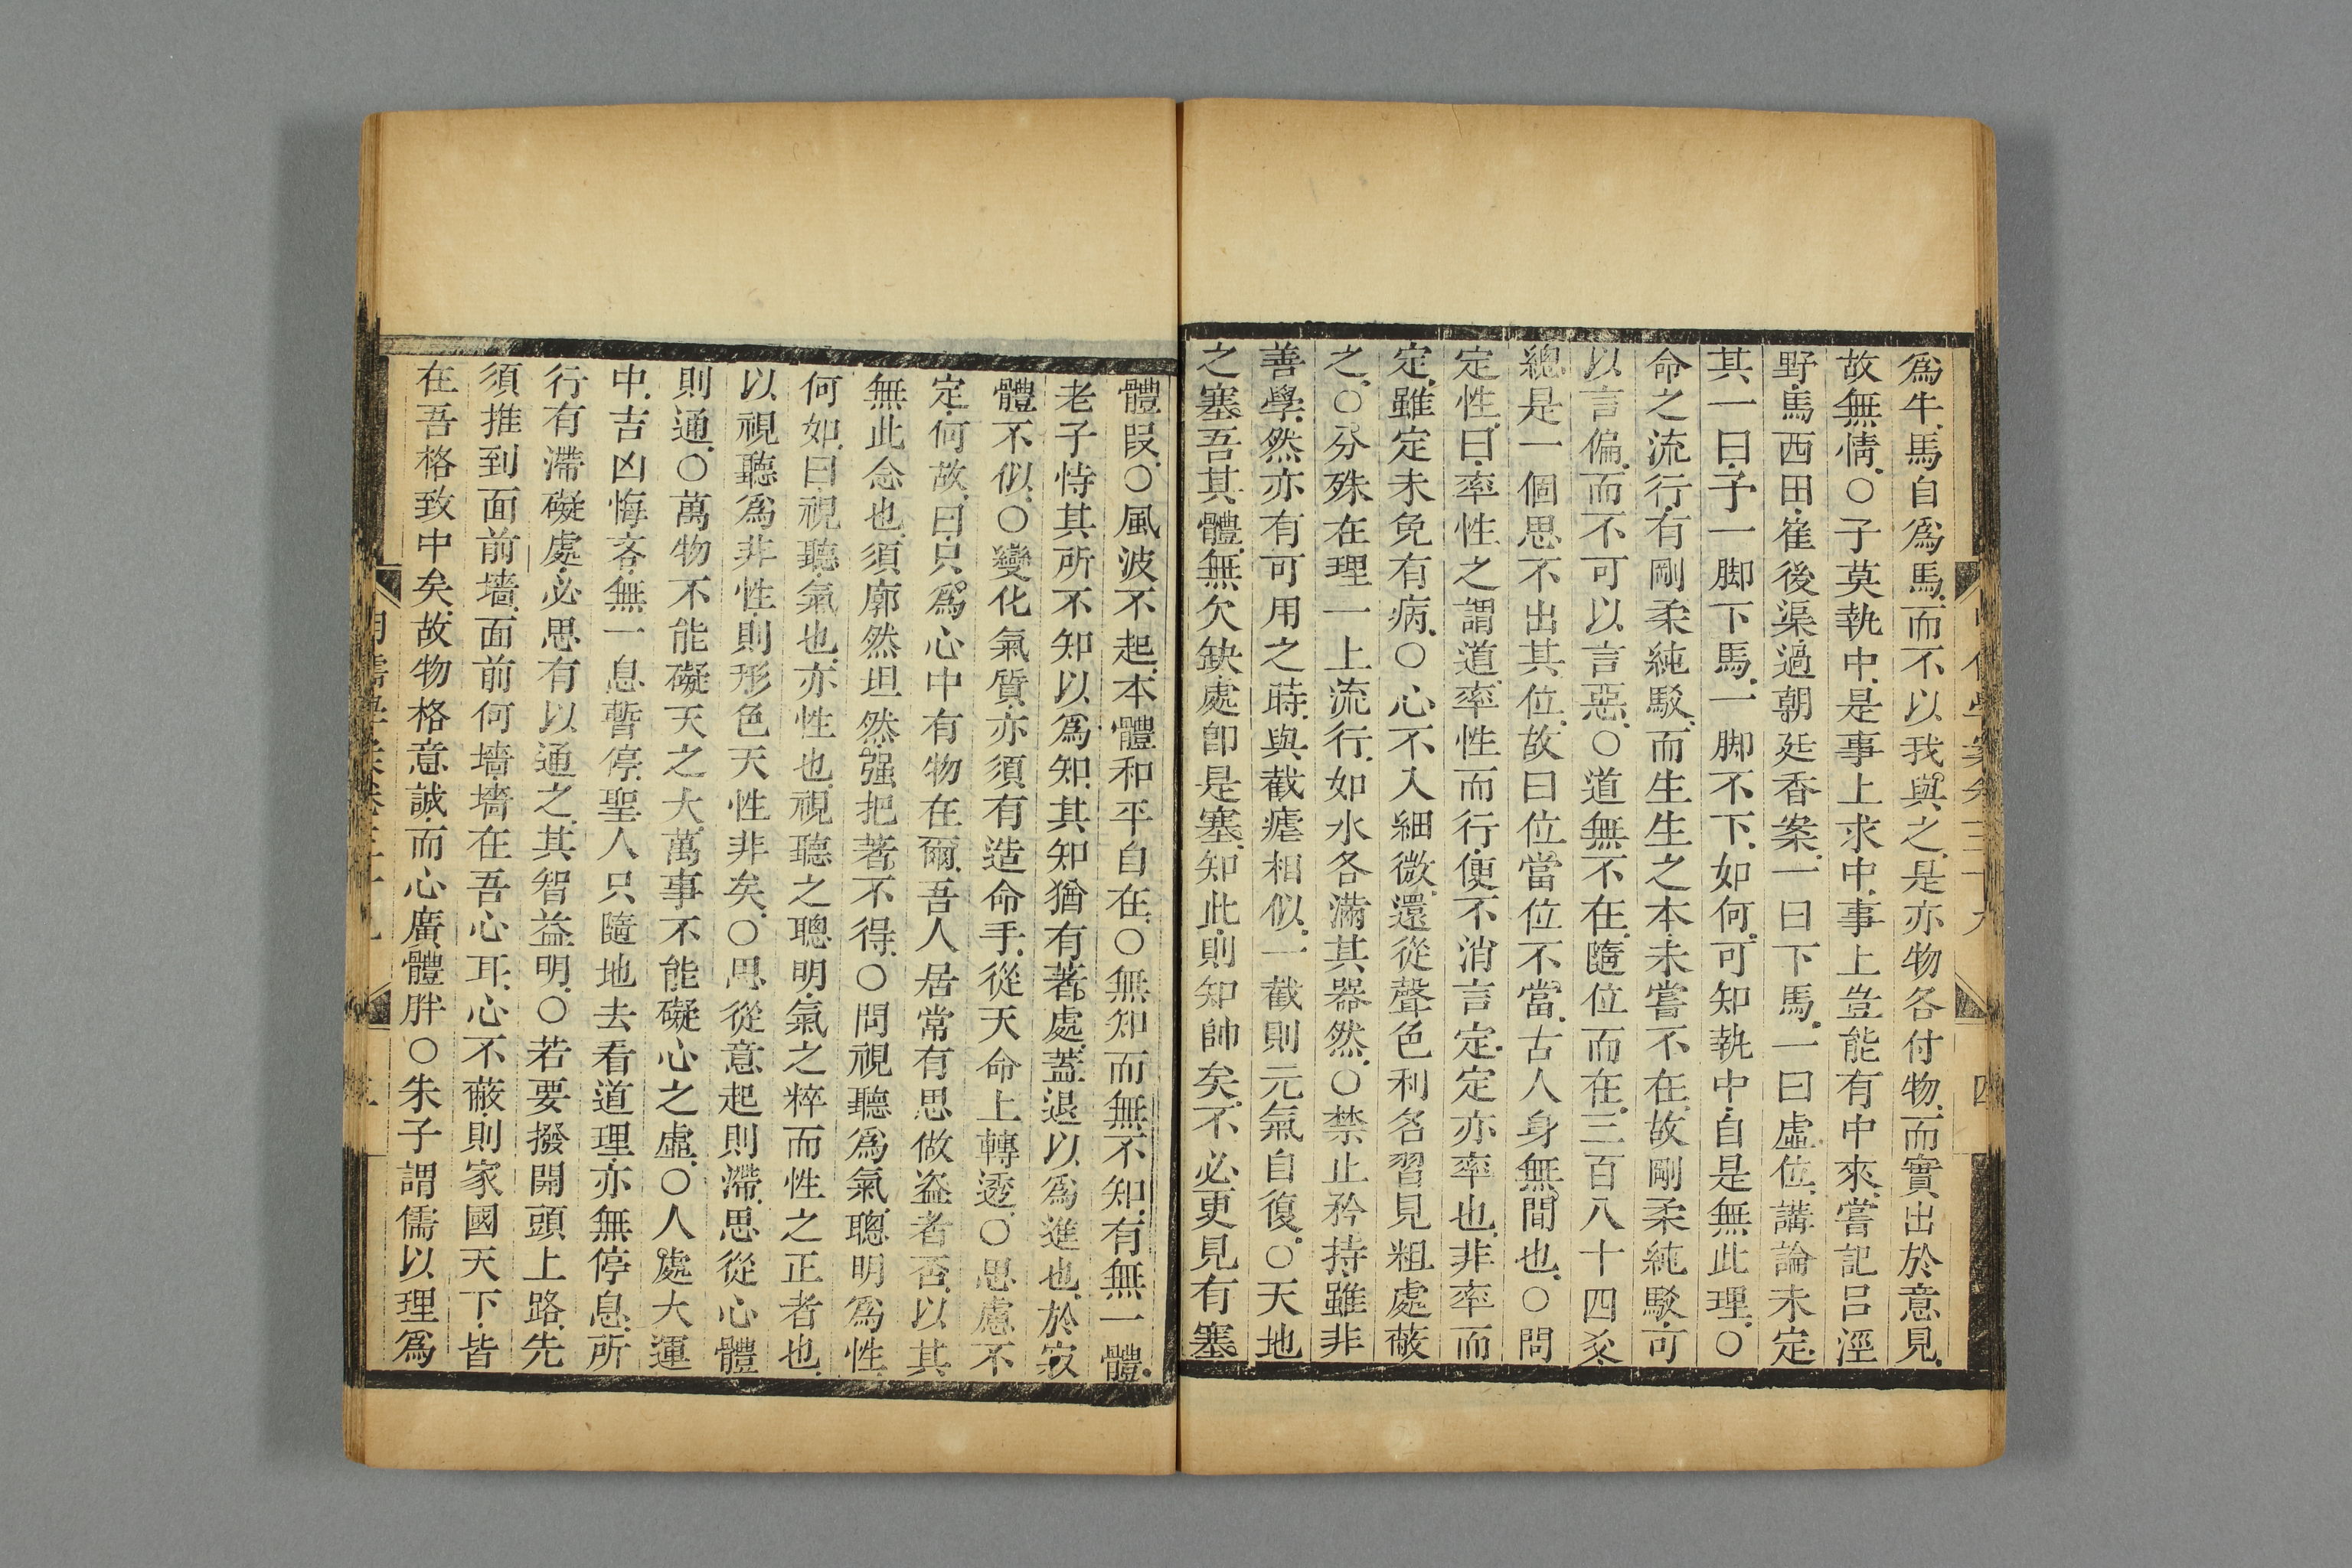 爲牛馬自爲馬而不以我與之是亦物各付物而實出於意見
故無情○子莫執中是事上求中事上豈能有中來嘗記呂涇
野馬西田崔後渠過朝廷香案一曰下馬一曰虛位講論未定
其一曰子一脚下馬一脚不下如何可知執中自是無此理○
命之流行有剛柔純駁而生生之本未嘗不在故剛柔純駁可
以言偏而不可以言惡○道無不在隨位而在三百八十四爻
總是一個思不出其位故曰位當位不當古人身無間也○問
定性曰率性之謂道率性而行便不消言定定亦率也非率而
定雖定未免有病○心不入細微還從聲色利名習見粗處蔽
之○分殊在理一上流行如水各滿其器然○禁止矜持雖非
善學然亦有可用之時與截瘧相似一截則元氣自復○天地
之塞吾其體無欠缺處卽是塞知此則知帥矣不必更見有塞
體段○風波不起本體和平自在○無知而無不知有無一體
老子恃其所不知以爲知其知猶有著處蓋退以爲進也於寂
體不似○變化氣質亦須有造命手從天命上轉透○思慮不
定何故曰只爲心中有物在爾吾人居常有思做盗者否以其
無此念也須廓然坦然强把著不得○問視聽爲氣聰明爲性
何如曰視聽氣也亦性也視聽之聰明氣之粹而性之正者也
以視聽爲非性則形色天性非矣○思從意起則滯思從心體
則通○萬物不能礙天之大萬事不能礙心之虛○人處大運
中吉凶悔吝無一息暫停聖人只隨地去看道理亦無停息所
行有滯礙處必思有以通之其智益明○若要撥開頭上路先
須推到面前墻面前何墻墻在吾心耳心不蔽則家國天下皆
在吾格致中矣故物格意誠而心廣體胖○朱子謂儒以理爲